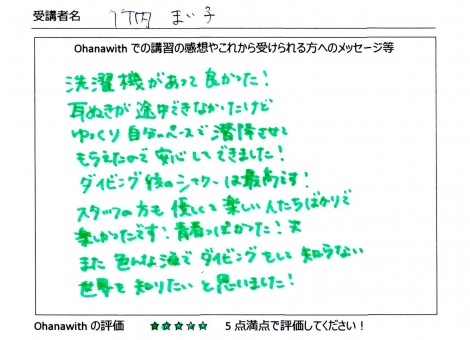 受講者名 竹内 まい子
Ohanawith での講習の感想やこれから受けられる方へのメッセージ等
洗濯機があって良かった！
耳ぬきが途中できなかったけど
ゆっくり自分のペースで潜降させて
もらえたので安心してできました！
ダイビング後のシャワーは最高です！
スタッフの方も優しくて楽しい人たちばかりで
楽しかったです！青春っぽかった！笑
また色んな海でダイビングをして知らない
世界を知りたいと思いました！
Ohanawith の評価 ★★★★★ 5 点満点で評価してください！